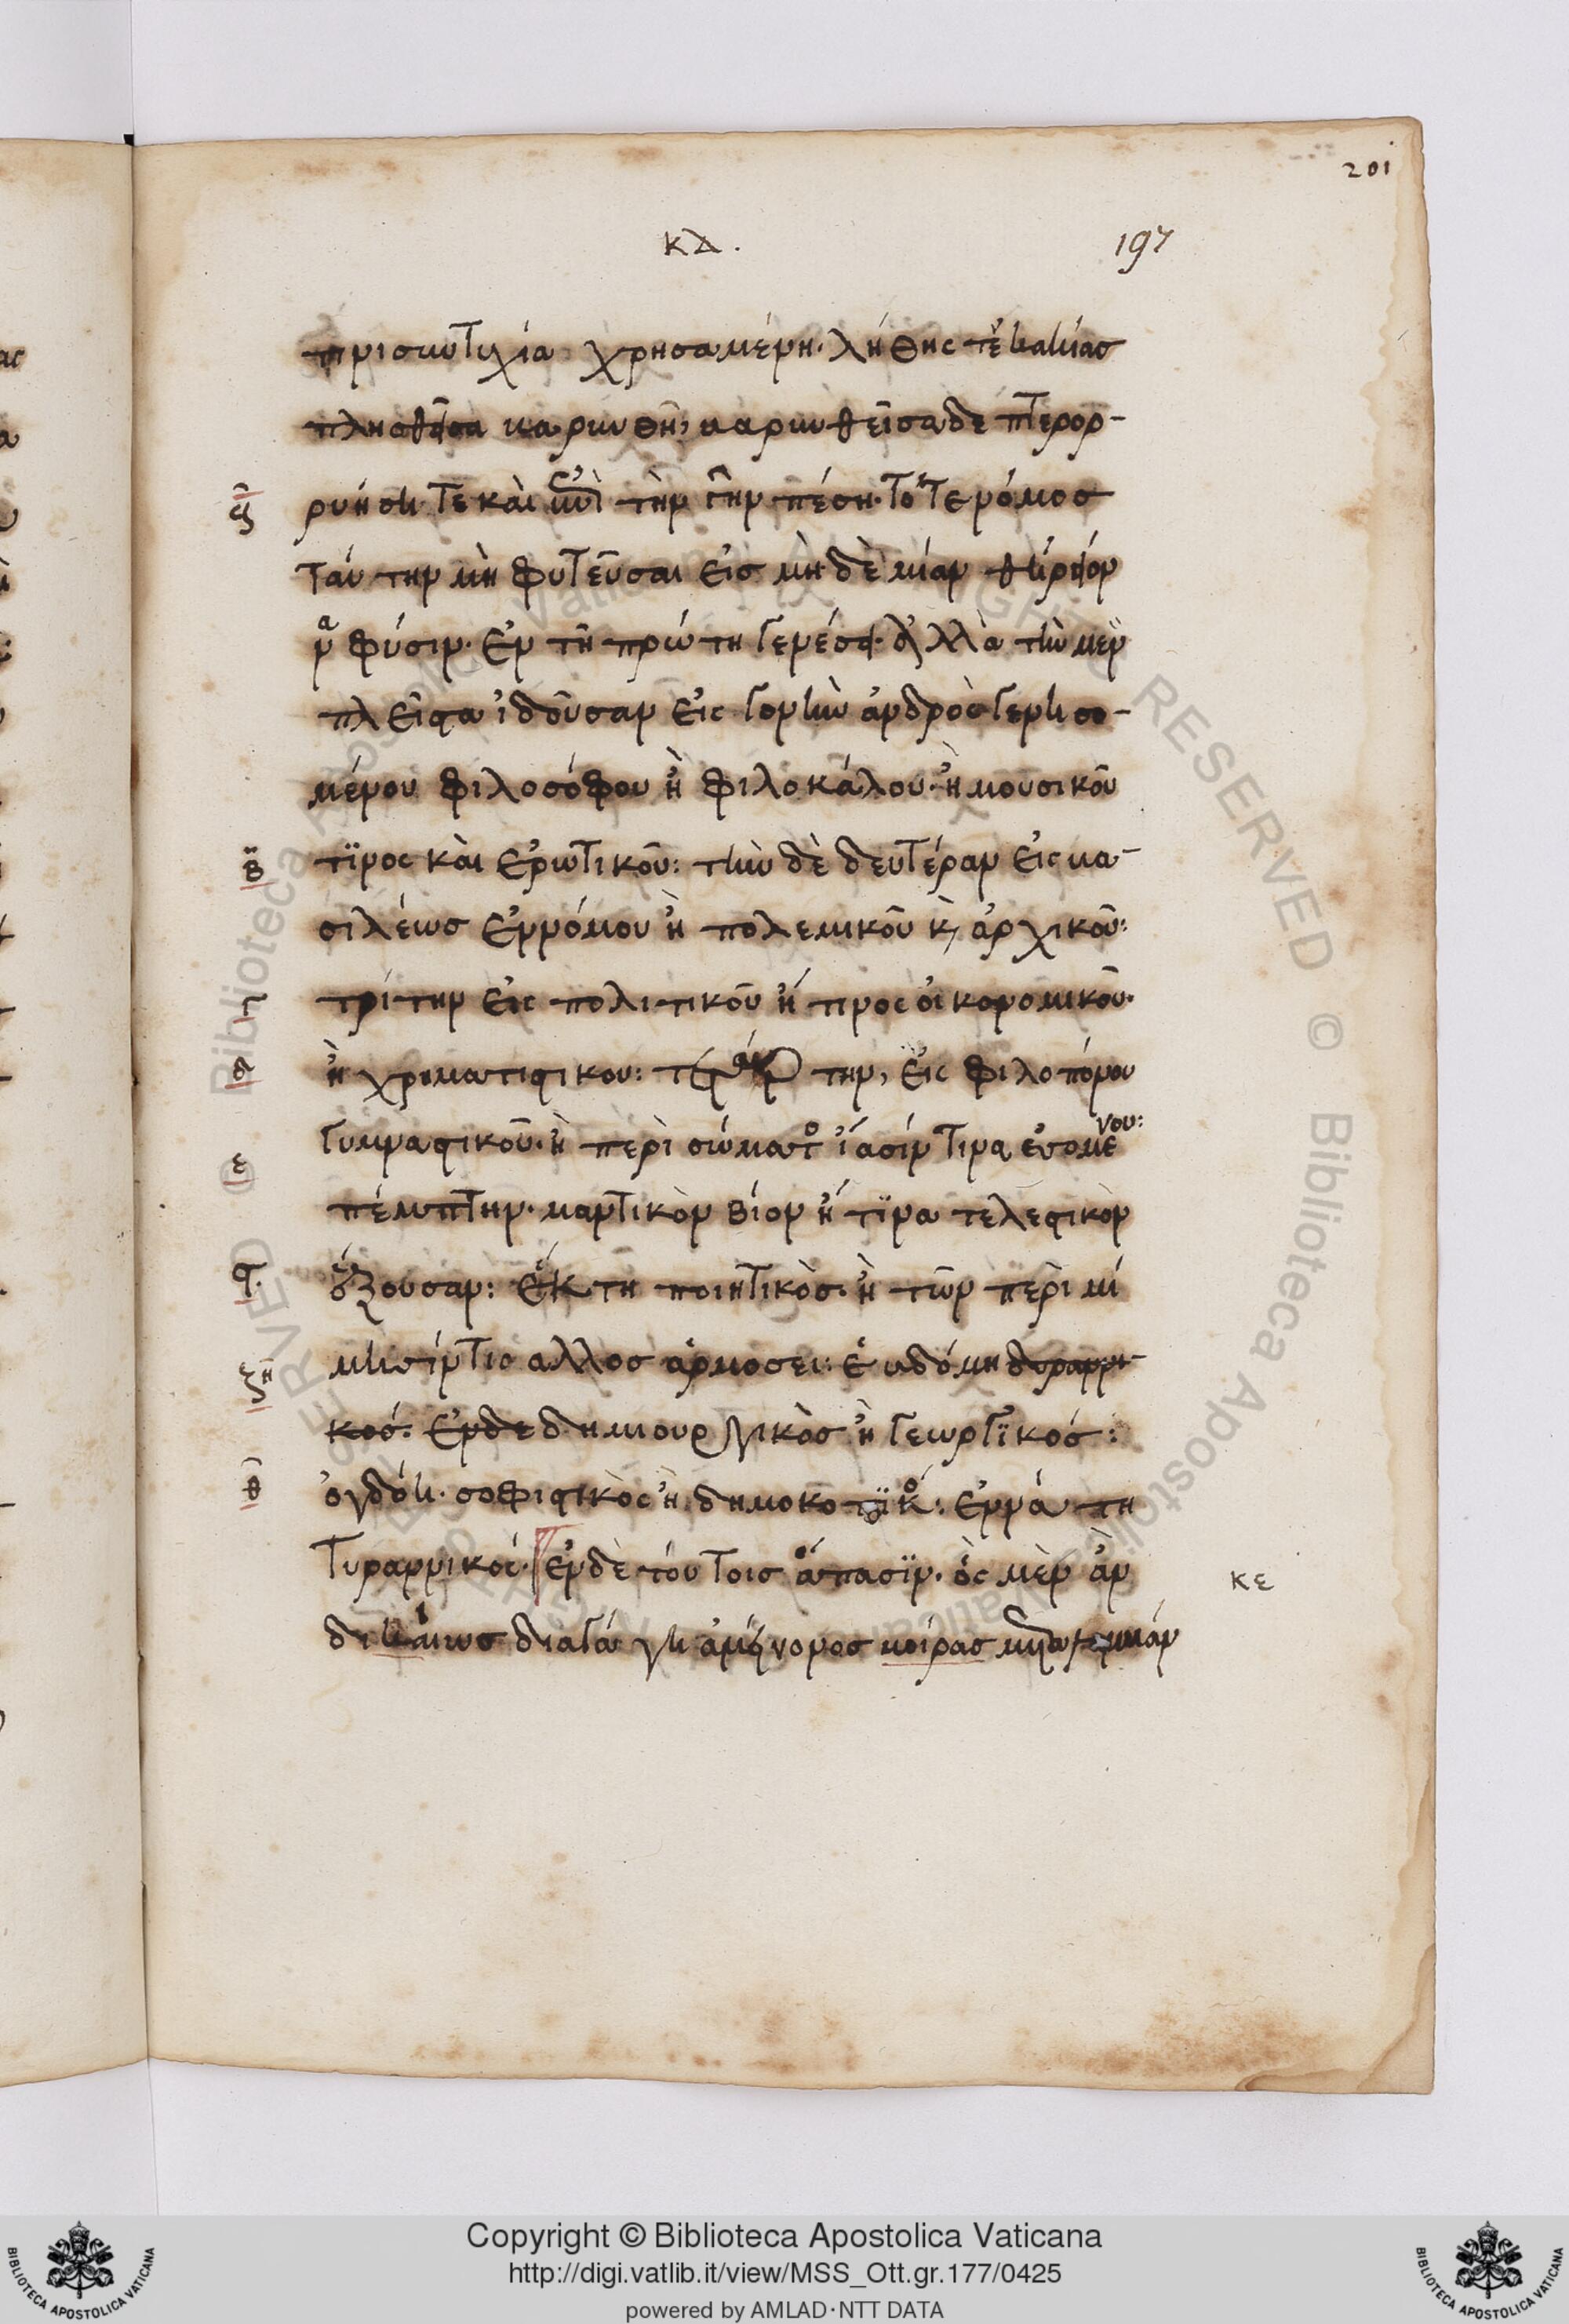 201
κδ.
197
τινὶ συντυχία χρησαμένη. λήθης τὲ κακίας
πλησθεῖσα βαρυνθῆ, βαρυνθεῖσα δε πτερορ-
ρυήση τε καὶ ἐπὶ τὴν γῆν πέση. τότε νόμος
ταύτην μὴ φυτεῦσαι εἰς μηδὲ μίαν θήρειον
φύσιν. ἐν τῆ πρώτη γενέσει. ἀλλὰ τὴν μεν
πλεῖστα ἰδοῦσαν εἰς γονὴν ἀνδρὸς γενησο-
μένου φιλοσόφου ἢ φιλοκάλου. ἢ μουσικοῦ
τϊνος καὶ ἐρωτικοῦ: τὴν δὲ δευτέραν εἰς βα-
σιλέως ἐννόμου ἢ πολεμικοῦ κ ἀρχικοῦ:
τρίτην εἰς πολιτικοῦ ἤ τινος οἰκονομικοῦ.
ἢ χρηματιστικου: την, εἰς φιλοπόνου
γυμναστικοῦ. ἢ περὶ σώματος ἴασίν τινα ἐσομένου:
πέμπτην. μαντικὸν βίον ἤ τϊνα τελεστικὸν
ἕξουσαν: ἕκτη ποιητικὸς. ἢ τῶν περὶ μί
μησίν τις αλλος ἁρμοσει: ἑβδόμη
κός: ἐνδε δημιουργικὸς ἢ γεωργϊκός:
ὀγδόη. σοφιστικὸς ἢ δημοκοτϊκὸς: ἐννάτη
τυραννικός. ἐνδὲ τούτοις ἅπασϊν. ὃς μὲν ἀν
δικαίως διαγάγη ἀμείνονος μοίρας
κε
ϛ
β
γ
δ
ε
ϛ.
ζη
θ
Copyright © Biblioteca Apostolica Vaticana
http://digi.vatlib.it/view/MSS_Ott.gr.177/0425
powered by AMLAD·NTT DATA
BIBLIOTECA APOSTOLICA VATICANA
BIBLIOTECA APOSTOLICA VATICANA